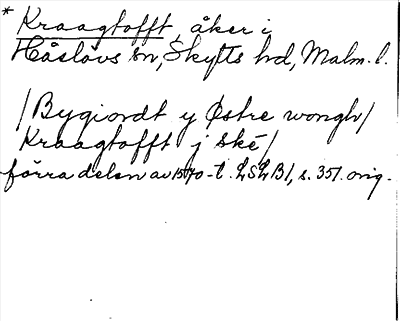 * Kraagtofft, åker i
Håslövs sn, Skytts hd, Malm. l.
/Bygiordt y Østre wongh/
Kraagtofft j ské/
förra delen av 1570-t. LSLB1, s. 351. orig.